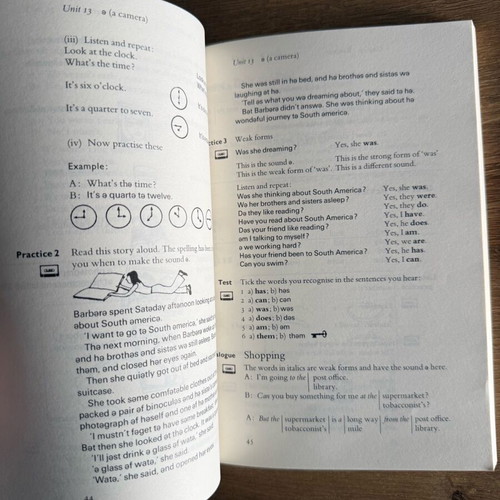 Unit 13 ə (a camera)
(iii) Listen and repeat:
Look at the clock.
What's the time?
It's six o'clock.
It's a quarter to seven.
(iv) Now practise these
Example:
A: What's thə time?
B: It's ə quartə tə twelve.
Practice 2 Read this story aloud. The spelling has
you when to make the sound ə.
Barbərə spent Satəday aftənoon looking
əbout South əmericə.
'I want tə gə tə South əmericə,' she
Thə next morning, when Barbərə woke
ənd hə brothəs ənd sistəs wə still
thəm, and closed hər eyes again.
Then she quiətly got out əf bed ənd
suitcase.
She took səme comfətable clothes
packed ə pair əf binoculəs ənd hə
photəgraph əf həself ənd one əf hə
'I mustn't fəget tə have səme breakfəst,'
Bət then she looked ət thə clock.
'I'll jəst drink ə glass əf watə,' she said.
'ə glass əf watə,' she said.
'Watə,' she said, ənd opened hər eyes.
44
Unit 13 ə (a camera)
She wəs still in hə bed, ənd hə brothəs ənd sistəs wə
laughing ət hə.
'Tell əs what you wə dreaming about,' they said tə hə.
Bət Barbərə didn't answə. She wəs thinking əbout hə
wondəful journey tə South əmericə.
Practice 3 Weak forms
Wəs she dreaming? Yes, she was.
This is the sound ə. This is the strong form of 'was'
This is the weak form of 'was'. This is a different sound.
Listen and repeat:
Wəs she thinking əbout South əmericə? Yes, she was.
Wə hər brothers ənd sistəs əsleep? Yes, they were.
Də they like reading? Yes, they do.
Həve you read əbout South əmericə? Yes, I have.
Dəs your friend like reading? Yes, he does.
əm I talking to myself? Yes, I am.
ə we working hard? Yes, we are.
Həs your friend been to South əmericə? Yes, he has.
Cən you swim? Yes, I can.
Test Tick the words you recognise in the sentences you hear:
1 a) has; b) həs
2 a) can; b) cən
3 a) was; b) wəs
4 a) does; b) dəs
5 a) am; b) əm
6 a) them; b) thəm
Dialogue Shopping
The words in italics are weak forms and have the sound ə here.
A: I'm going to the post office.
library.
B: Can you buy something for me at the supermarket?
tobacconist's?
A: But the supermarket is a long way from the post office.
tobacconist's mile library.
45